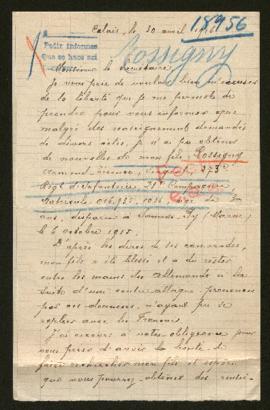 Calais, le 30 avril
18956
Pedir informes
Que se hace aci
Rossigny
Monsieur le Secrétaire,
Je vous prie de vouloir bien m'excuser
de la liberté que je me permets de
prendre pour vous informer que
malgré des renseignements demandés
de divers côtés, je n'ai pu obtenir
de nouvelles de mon fils, Rossigny
273e
Régt d'Infanterie, Compagnie
ans, disparu à
le 6 octobre 1915.
D'après les dires de ses camarades,
mon fils a été blessé et a dû rester
entre les mains des Allemands à la
suite d'une contre-attaque prononcée
par ces derniers, n'ayant pu se
replier avec les Français.
J'ai recours à votre obligeance pour
vous prier d'avoir la bonté de
faire rechercher mon fils et espère
que vous pourrez obtenir des rensei-